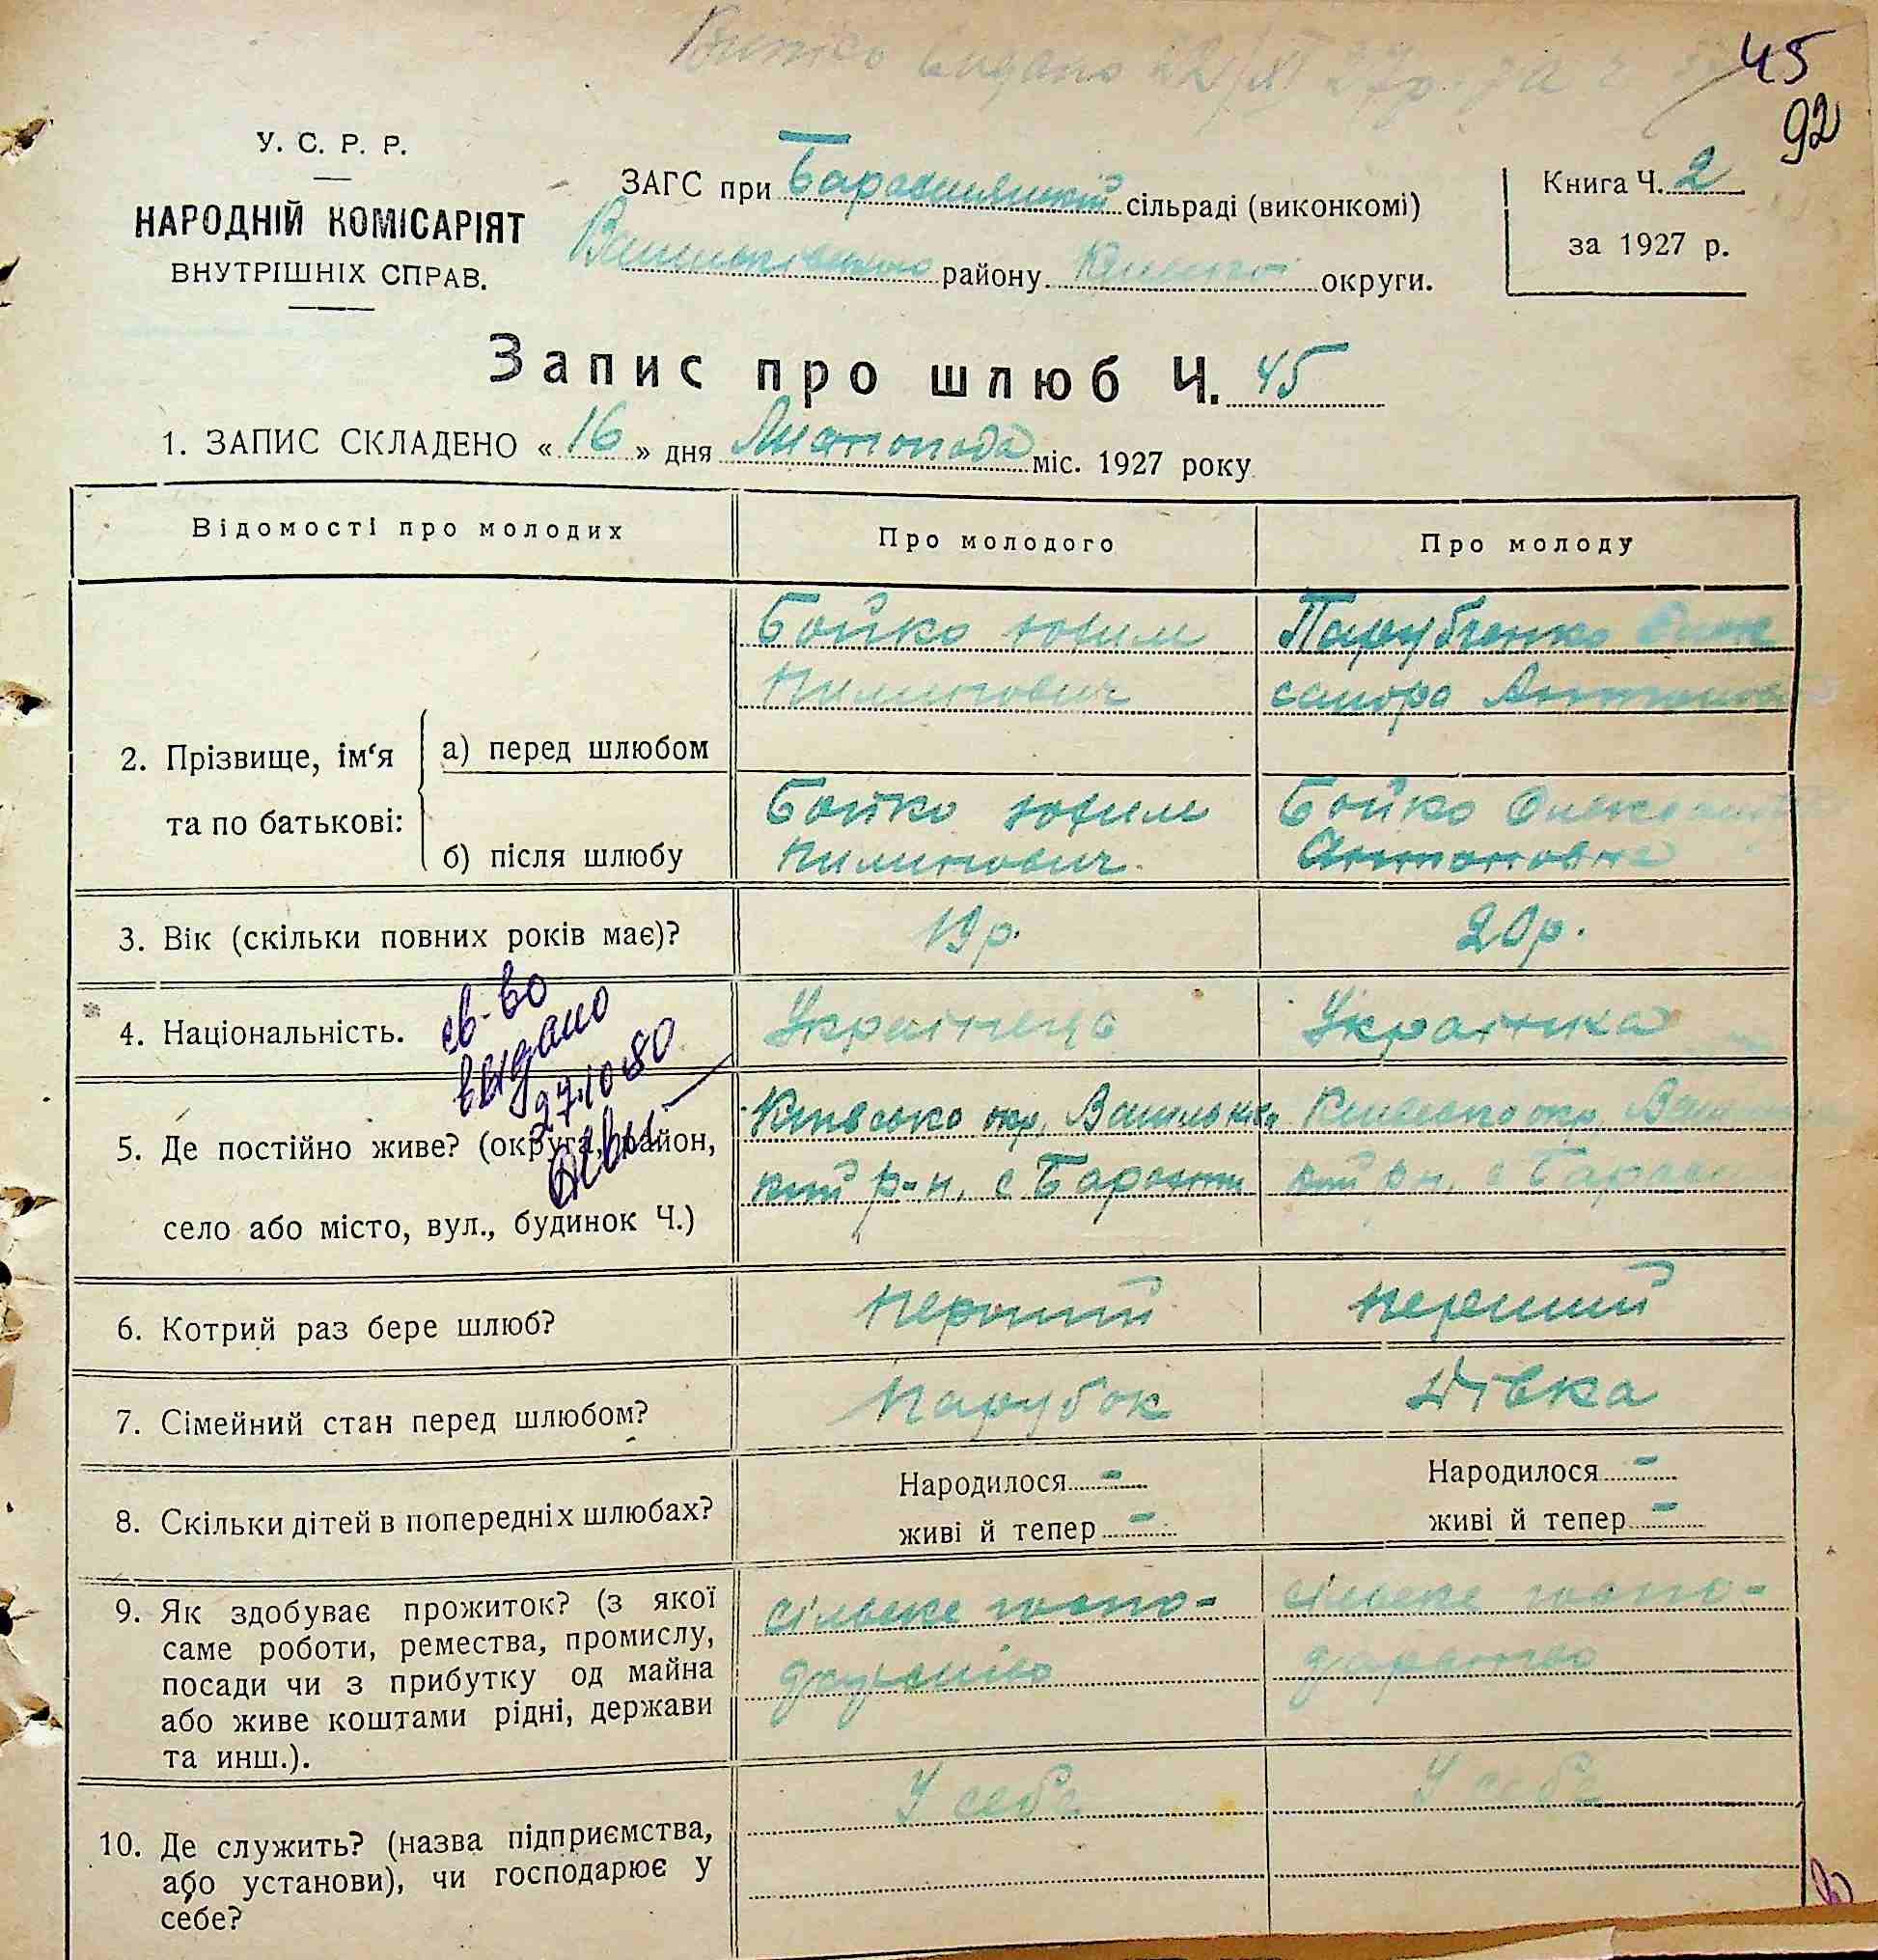 Витяг видано 22/XI 27р. за ч.
45
92
У. С. Р. Р.
НАРОДНІЙ КОМІСАРІЯТ
ВНУТРІШНІХ СПРАВ.
ЗАГС при сільраді (виконкомі)
району Київської округи.
Книга Ч. 2
за 1927 р.
Запис про шлюб Ч. 45
1. ЗАПИС СКЛАДЕНО « 16 » дня Листопада міс. 1927 року
Відомості про молодих
Про молодого
Про молоду
2. Прізвище, ім‘я
та по батькові:
а) перед шлюбом
Бойко Юхим
Пилипович
Парубченко Олек
сандра Антоновна
б) після шлюбу
Бойко Юхим
Пилипович
Бойко Олександра
Антоновна
3. Вік (скільки повних років має)?
19 р.
20 р.
4. Національність.
Українець
Українка
св-во
выдано
27.10.80
5. Де постійно живе? (округа, район,
село або місто, вул., будинок Ч.)
Київсько окр. Васильків
кий р-н. с
Київсько окр.
кий р-н. с
6. Котрий раз бере шлюб?
перший
перший
7. Сімейний стан перед шлюбом?
Парубок
Дівка
8. Скільки дітей в попередніх шлюбах?
Народилося -
живі й тепер -
Народилося -
живі й тепер -
9. Як здобуває прожиток? (з якої
саме роботи, ремества, промислу,
посади чи з прибутку од майна
або живе коштами рідні, держави
та инш.).
сільске госпо-
сільске госпо-
дарство
10. Де служить? (назва підприємства,
або установи), чи господарює у
себе?
У себе
У себе